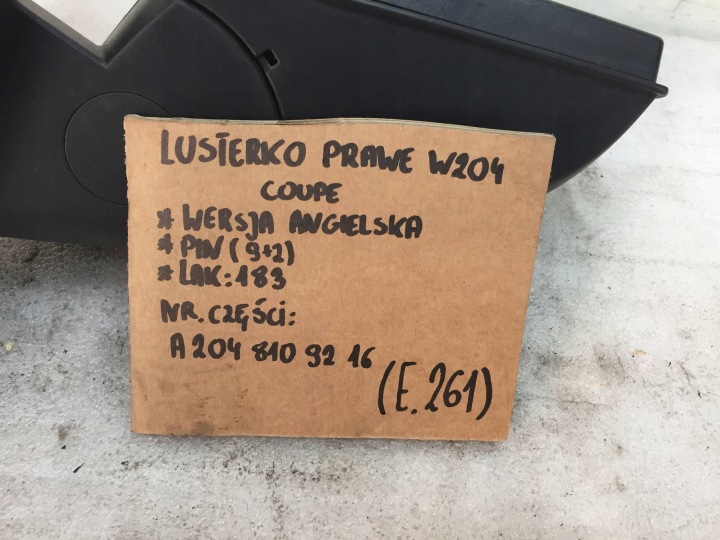 LUSTERKO PRAWE W204
COUPE
* WERSJA ANGIELSKA
* PIN (9+2)
* LAK: 183
NR. CZĘŚCI:
A 204 810 92 16
(E.261)